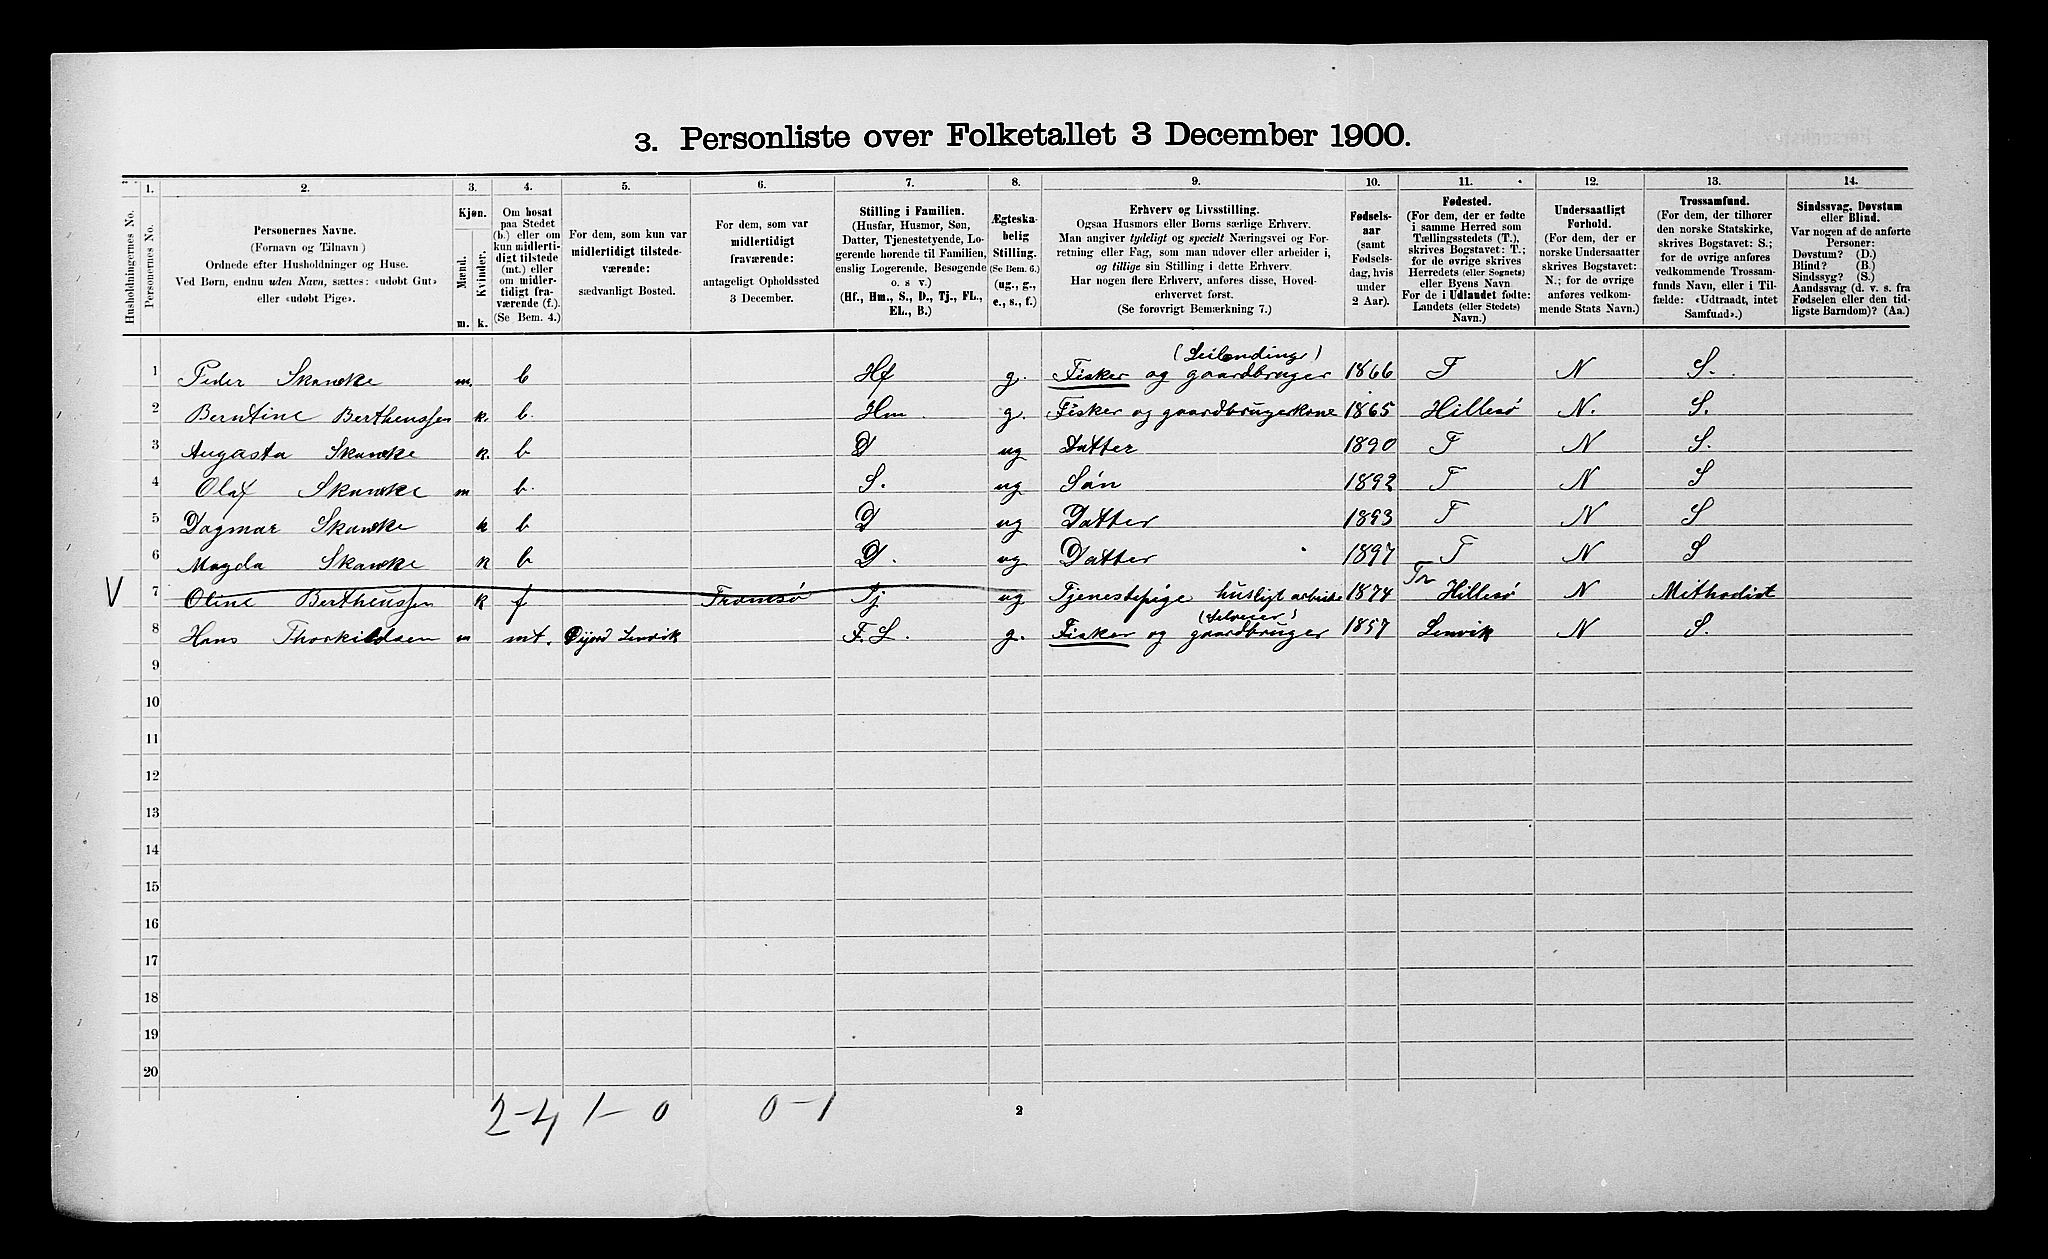 3. Personliste over Folketallet 3 December 1900.
Husholdningernes No.
1. Personernes No.
2. Personernes Navne. (Fornavn og Tilnavn) Ordnede efter Husholdninger og Huse. Ved Børn, endnu uden Navn, sættes: «udøbt Gut» eller «udøbt Pige».
3. Kjøn. Mænd. m. Kvinder. k.
4. Om bosat paa Stedet (b.) eller om kun midlertidigt tilstede (mt.) eller om midlertidigt fraværende (f.). (Se Bem. 4.)
5. For dem, som kun var midlertidigt tilstedeværende: sædvanligt Bosted.
6. For dem, som var midlertidigt fraværende: antageligt Opholdssted 3 December.
7. Stilling i Familien. (Husfar, Husmor, Søn, Datter, Tjenestetyende, Logerende hørende til Familien, enslig Logerende, Besøgende o. s v.) (Hf., Hm., S., D., Tj., FL., EL., B.)
8. Ægteskabelig Stilling. (Se Bem. 6.) (ug., g., e., s., f.)
9. Erhverv og Livsstilling. Ogsaa Husmors eller Børns særlige Erhverv. Man angiver tydeligt og specielt Næringsvei og Forretning eller Fag, som man udøver eller arbeider i, og tillige sin Stilling i dette Erhverv. Har nogen flere Erhverv, anføres disse, Hovederhvervet først. (Se forøvrigt Bemærkning 7.)
10. Fødselsaar (samt Fødselsdag, hvis under 2 Aar).
11. Fødested. (For dem, der er fødte i samme Herred som Tællingsstedets (T.), skrives Bogstavet: T.; for de øvrige skrives Herredets (eller Sognets) eller Byens Navn. For de i Udlandet fødte: Landets (eller Stedets) Navn.)
12. Undersaatligt Forhold. (For dem, der er norske Undersaatter skrives Bogstavet: N.; for de øvrige anføres vedkommende Stats Navn.)
13. Trossamfund. (For dem, der tilhører den norske Statskirke, skrives Bogstavet: S.; for de øvrige anføres vedkommende Trossamfunds Navn, eller i Tilfælde: «Udtraadt, intet Samfund».)
14. Sindssvag, Døvstum eller Blind. Var nogen af de anførte Personer: Døvstum? (D.) Blind? (B.) Sindssyg? (S.) Aandssvag (d. v. s. fra Fødselen eller den tidligste Barndom)? (Aa.)
(Leilending)
1 Peder Skancke m. b Hf g. Fisker og gaardbruger 1866 T N S.
2 Berntine Bertheussen k. b. Hm. g. Fisker og gaardbrugerkone 1865 Hillesø N. S.
3 Augasta Skancke k. b D ug Datter 1890 T N S.
4 Olaf Skancke m b. S. ug Søn 1892 T N S
5 Dagmar Skancke k b D ug Datter 1893 T N S
6 Magda Skancke k b D. ug Datter 1897 T N S
V 7 Oline Bertheussen k f Tromsø Tj ug Tjenestepige husligt arbeide 1874 Tr Hillesø N Methodist
(Selveier)
8 Hans Thorkildsen m mt. Lenvik F.L. g. Fisker og gaardbruger 1857 Lenvik N S.
9
10
11
12
13
14
15
16
17
18
19
20
2-4 1-0 0-1
2